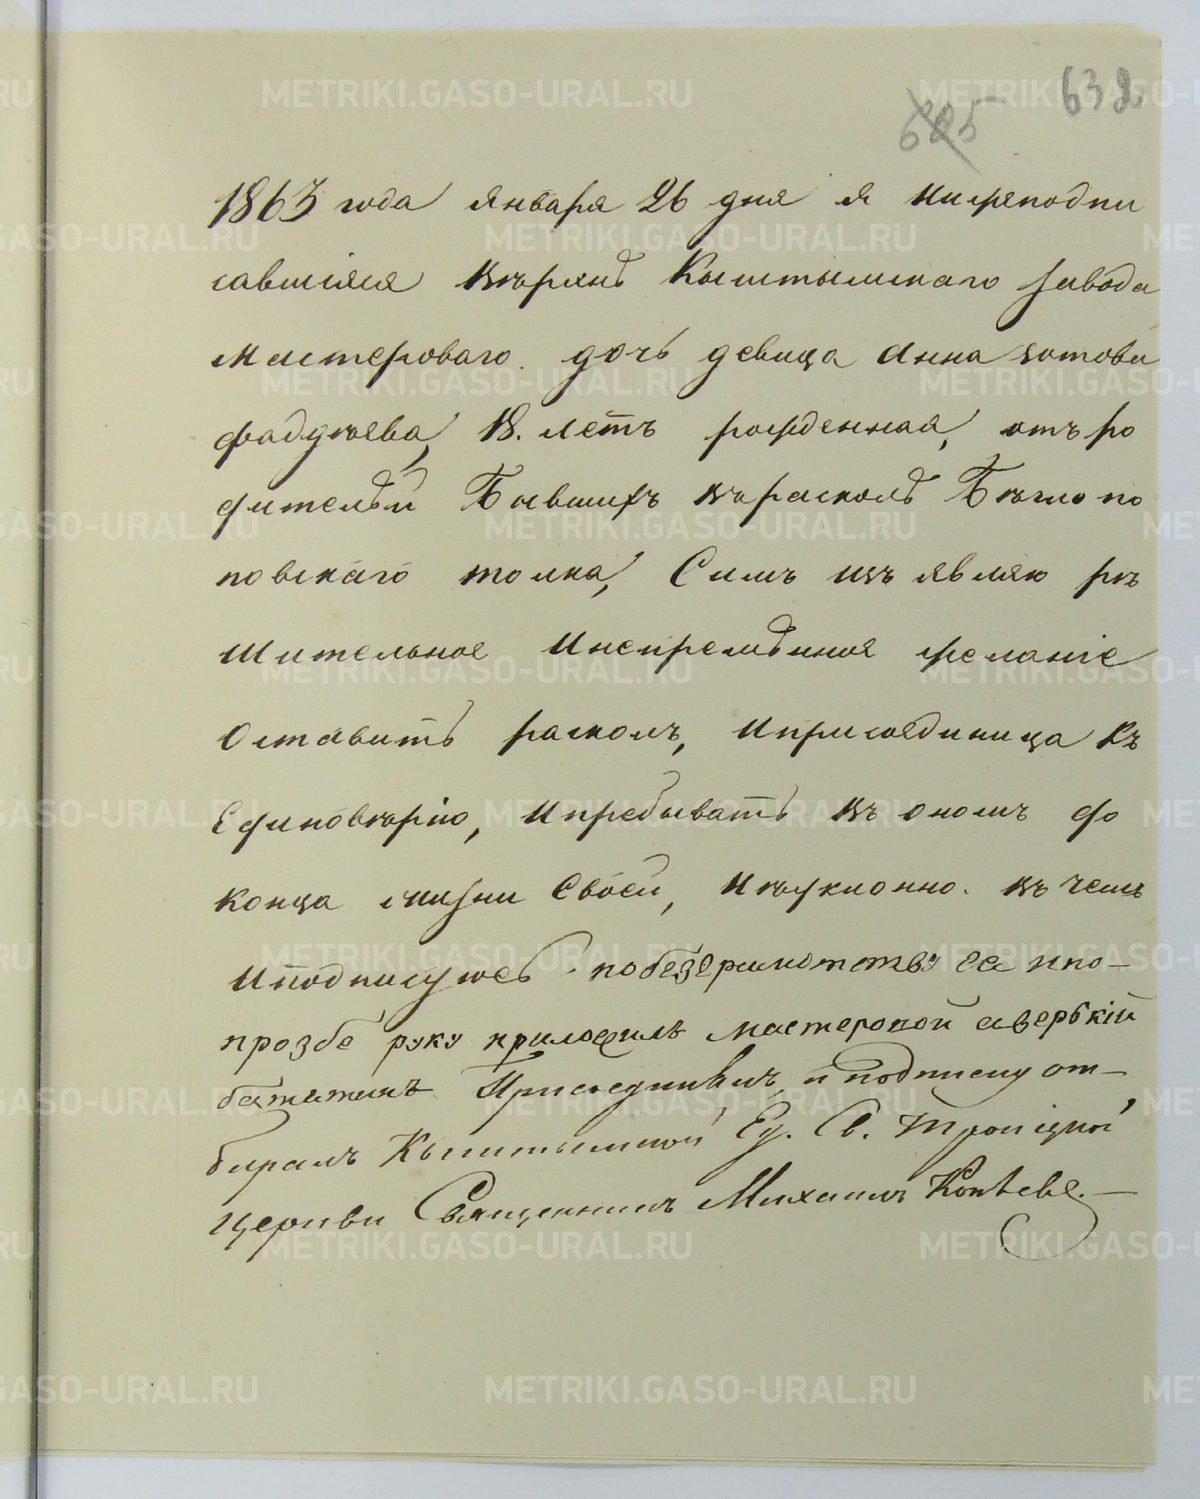 632
625
1863 года января 26 дня я нижеподпи
савшіяся Верхъ Кыштымскаго завода
мастероваго дочь девица Анна Зотова
Фадѣева, 18. летъ рожденная, отъ ро
дителей Бывшихъ въ расколѣ Бѣгло по
повскаго толка, Симъ изъявляю рѣ
шительное Инепременное желаніе
Оставить расколъ, Иприсоединица Къ
Единоверію, Ипребывать въ ономъ до
Конца жизни Своей, Неуклонно. въ чемъ
Иподписуюсь побезграмотству ее ипо-
прозбе руку приложилъ мастеровой аверькій
Присоединилъ и подписку от-
биралъ Кыштымской Ед. Св. Троицкой
церкви Священникъ Михаилъ
METRIKI.GASO-URAL.RU